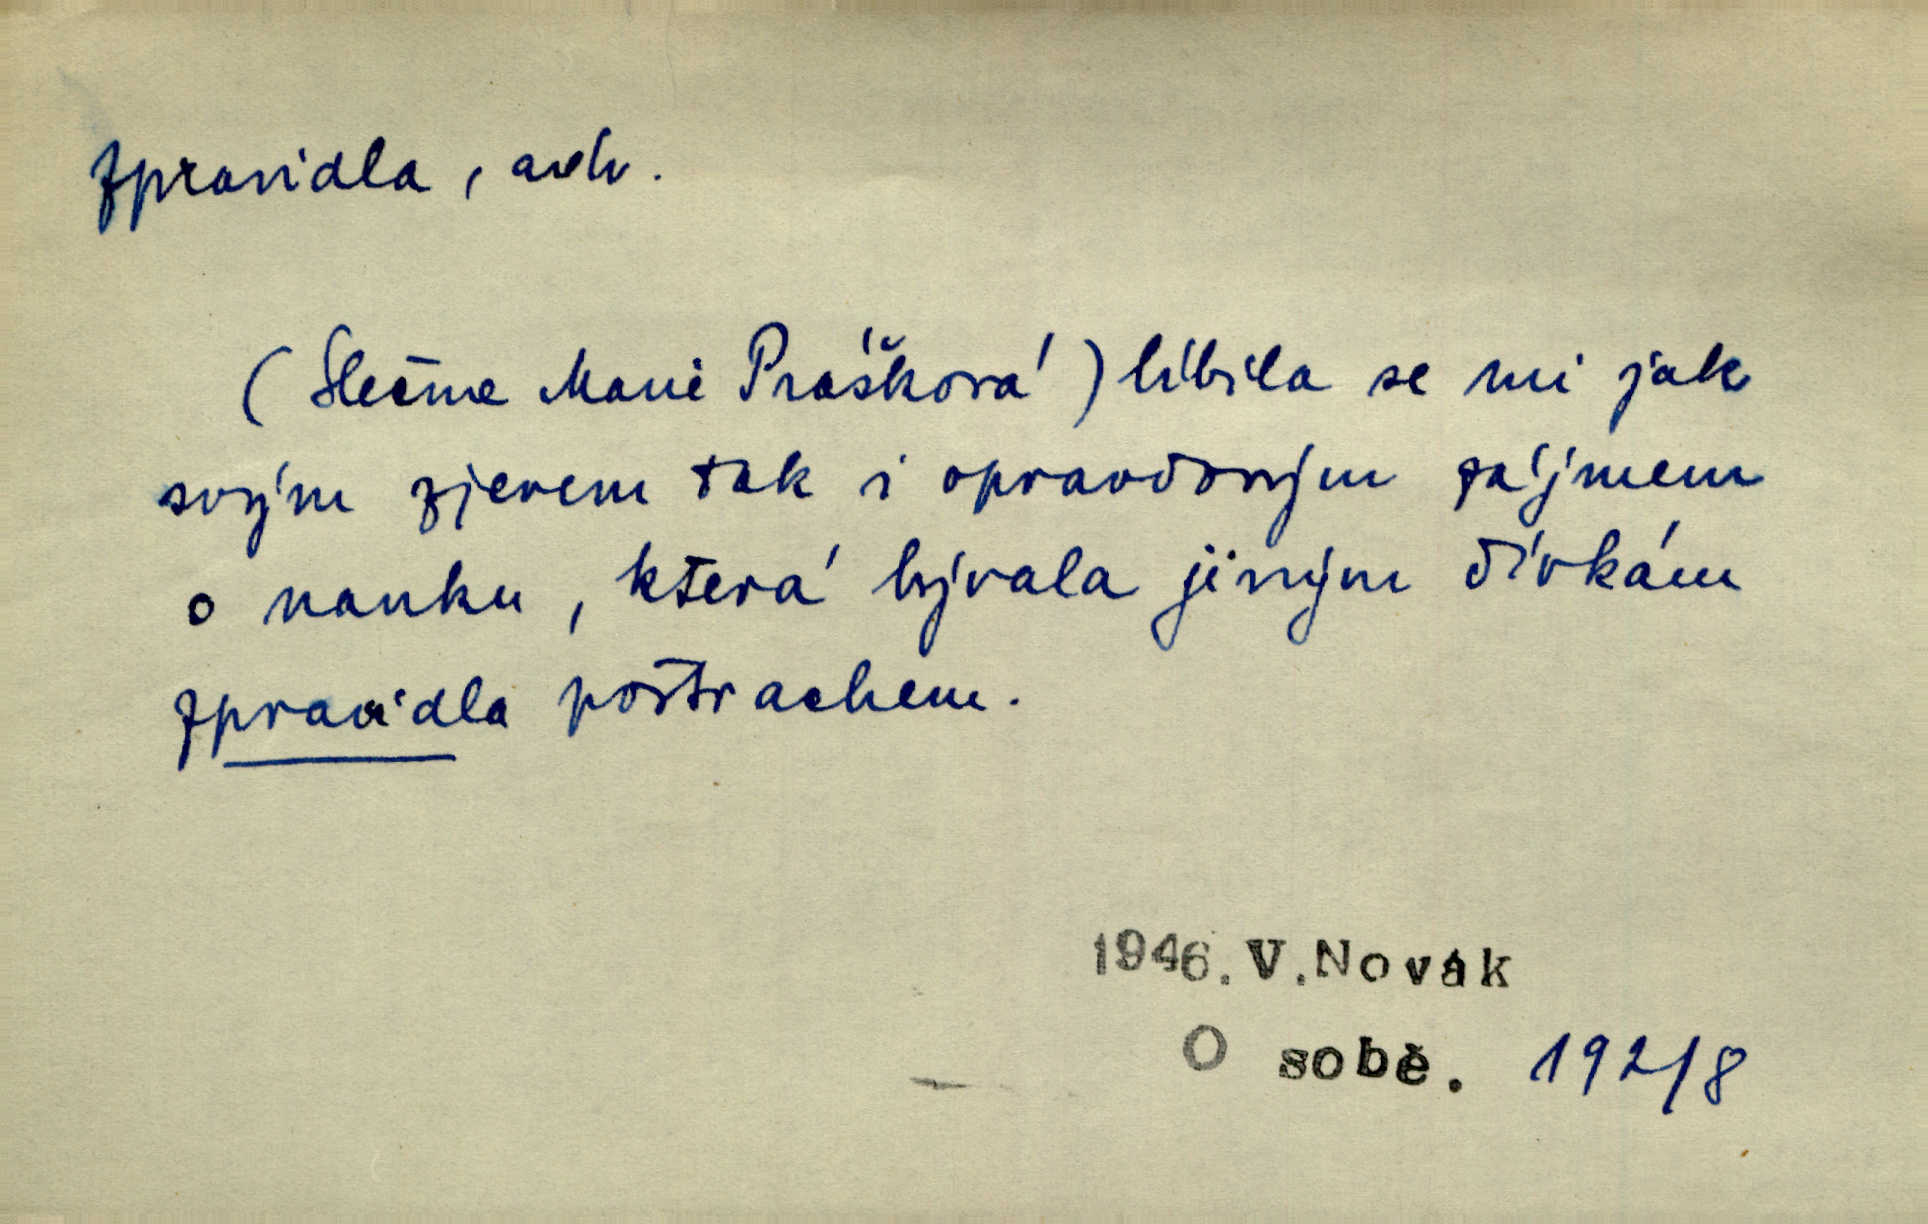 zpravidla, adv.
(Slečna Marie Prášková) líbila se mi jak
svým zjevem tak i opravdovým zájmem
o nauku, která bývala jiným dívkám
zpravidla postrachem.
1946. V. Novák
O sobě. 192/8